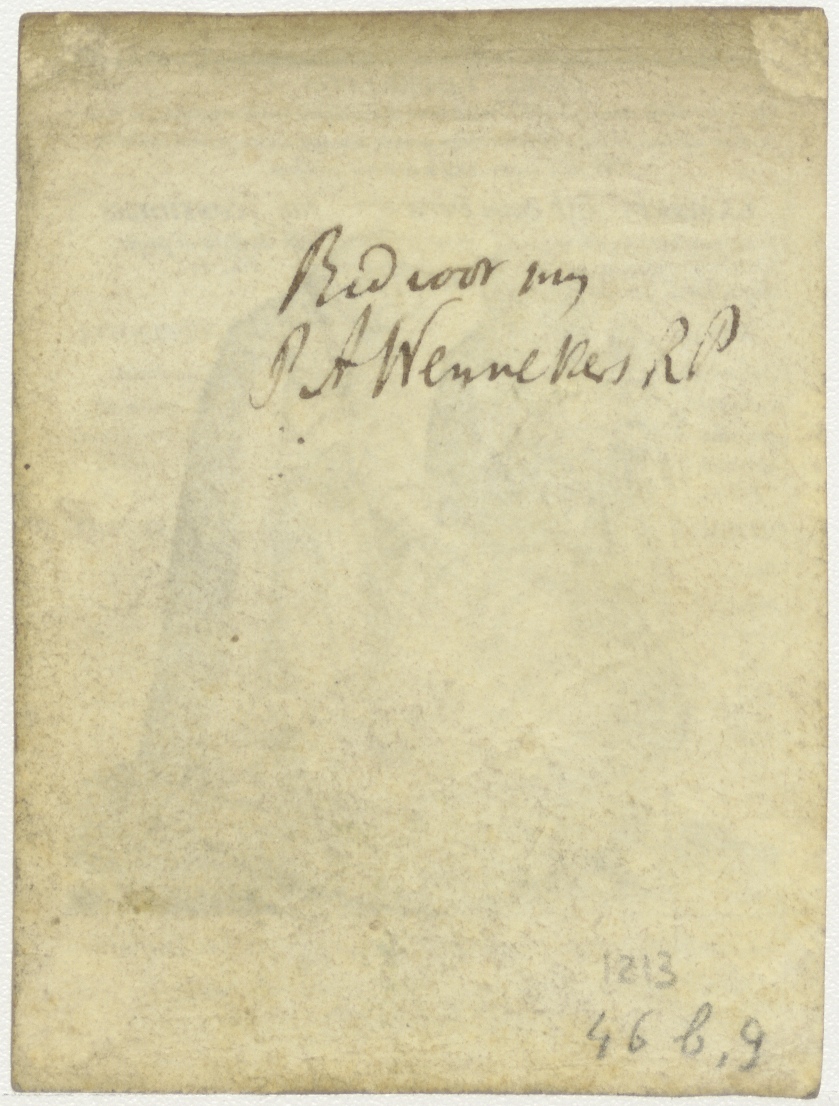 Bid voor my
P A Wennekers RP
1213
46 b, 9